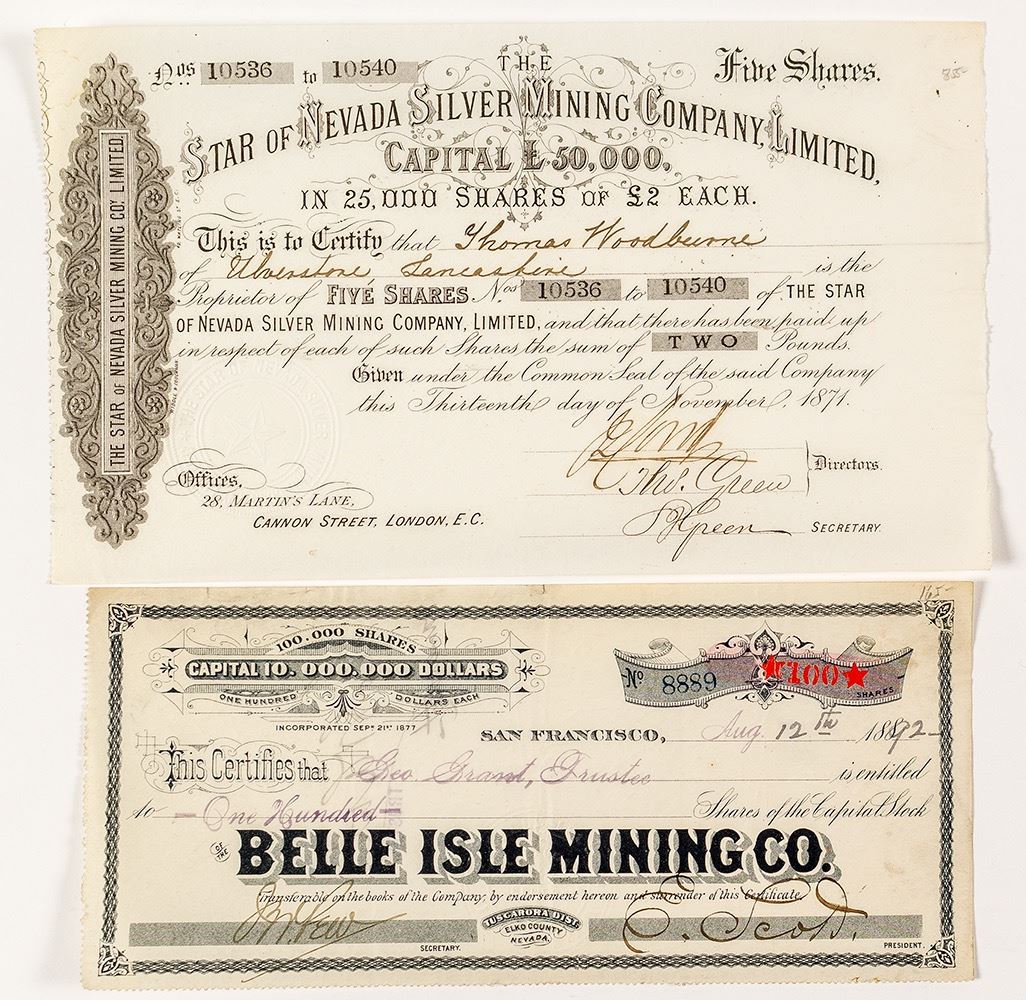 Nos 10536 to 10540
THE
Five Shares.
85-
STAR OF NEVADA SILVER MINING COMPANY, LIMITED,
CAPITAL £50,000.
IN 25,000 SHARES OF £2 EACH.
This is to Certify that Thomas Woodburne
of Ulverstone Lancashire is the
Proprietor of FIVE SHARES Nos 10536 to 10540 of THE STAR
OF NEVADA SILVER MINING COMPANY, LIMITED, and that there has been paid up
in respect of each of such Shares the sum of TWO Pounds.
Given under the Common Seal of the said Company
this Thirteenth day of November, 1871.
THE STAR OF NEVADA SILVER MINING COY LIMITED.
Offices,
28, MARTIN'S LANE,
CANNON STREET, LONDON, E.C.
Thos. Green
Directors.
Green
SECRETARY.
165-
100.000 SHARES
CAPITAL 10.000.000 DOLLARS
ONE HUNDRED DOLLARS EACH
INCORPORATED SEPT 21ST 1877
No 8889
100
SHARES
SAN FRANCISCO, Aug. 12th 1892-
This Certifies that Geo. Grant, Trustee is entitled
to One Hundred Shares of the Capital Stock
OF THE BELLE ISLE MINING CO.
Transferable on the books of the Company, by endorsement hereon and surrender of this Certificate.
TUSCARORA DIST.
ELKO COUNTY
NEVADA.
J.W. Pew
SECRETARY.
C. Scott.
PRESIDENT.